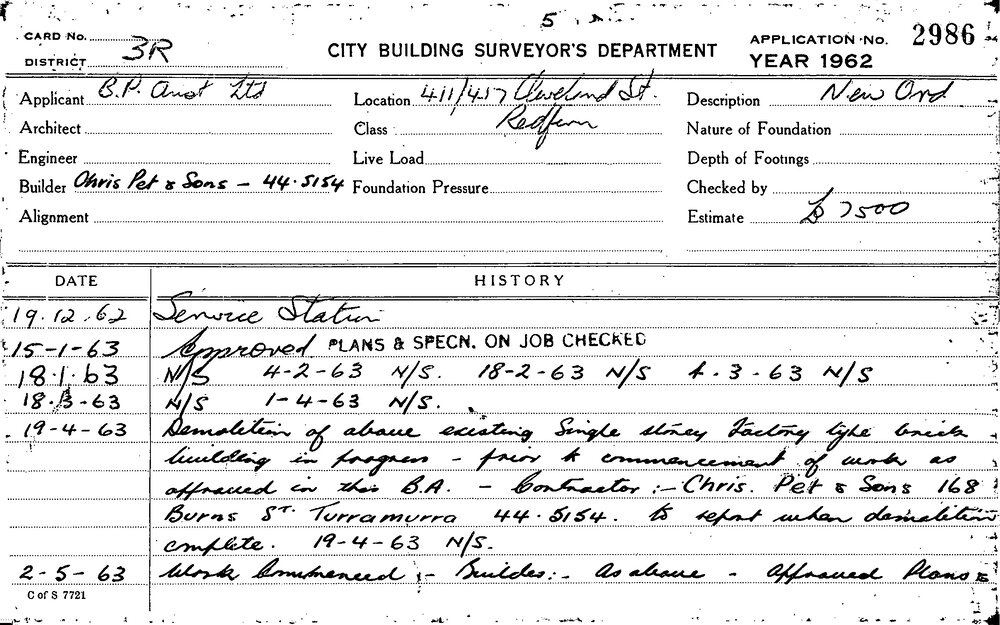 5
CARD No.
DISTRICT 3R
CITY BUILDING SURVEYOR'S DEPARTMENT
APPLICATION No. 2986
YEAR 1962
Applicant B.P. Aust Ltd
Location 411/417 Cleveland St.
Redfern
Description New Ord
Architect
Class
Nature of Foundation
Engineer
Live Load
Depth of Footings
Builder Chris Pet & Sons - 44.5154
Foundation Pressure
Checked by
Alignment
Estimate £ 7500
DATE HISTORY
19.12.62 Service Station
15-1-63 Approved PLANS & SPECN. ON JOB CHECKED
18.1.63 N/S 4-2-63 N/S. 18-2-63 N/S 4.3.63 N/S
18.3-63 N/S 1-4-63 N/S.
19-4-63 Demolition of above existing Single storey Factory type brick
building in progress - prior to commencement of work as
approved in this B.A. - Contractor :- Chris. Pet & Sons 168
Burns St. Turramurra 44.5154. to report when demolition
complete. 19-4-63 N/S.
2-5-63 Work Commenced :- Builder:- As above - Approved Plans &
C of S 7721